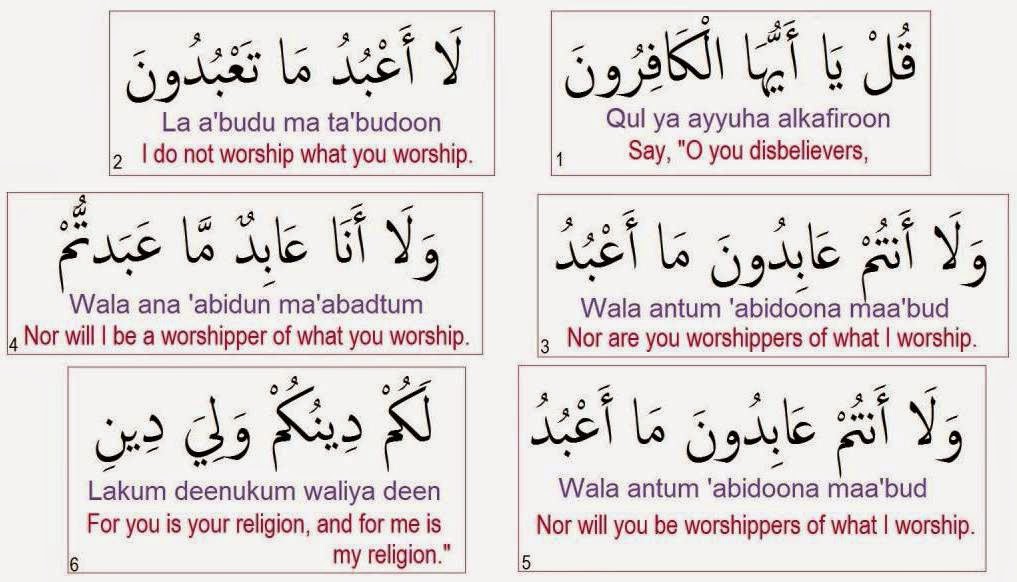 قُلْ يَا أَيُّهَا الْكَافِرُونَ
Qul ya ayyuha alkafiroon
1 Say, "O you disbelievers,
لَا أَعْبُدُ مَا تَعْبُدُونَ
La a'budu ma ta'budoon
2 I do not worship what you worship.
وَلَا أَنتُمْ عَابِدُونَ مَا أَعْبُدُ
Wala antum 'abidoona maa'bud
3 Nor are you worshippers of what I worship.
وَلَا أَنَا عَابِدٌ مَّا عَبَدتُّمْ
Wala ana 'abidun ma'abadtum
4 Nor will I be a worshipper of what you worship.
وَلَا أَنتُمْ عَابِدُونَ مَا أَعْبُدُ
Wala antum 'abidoona maa'bud
Nor will you be worshippers of what I worship.
5
لَكُمْ دِينُكُمْ وَلِيَ دِينِ
Lakum deenukum waliya deen
For you is your religion, and for me is
6 my religion."